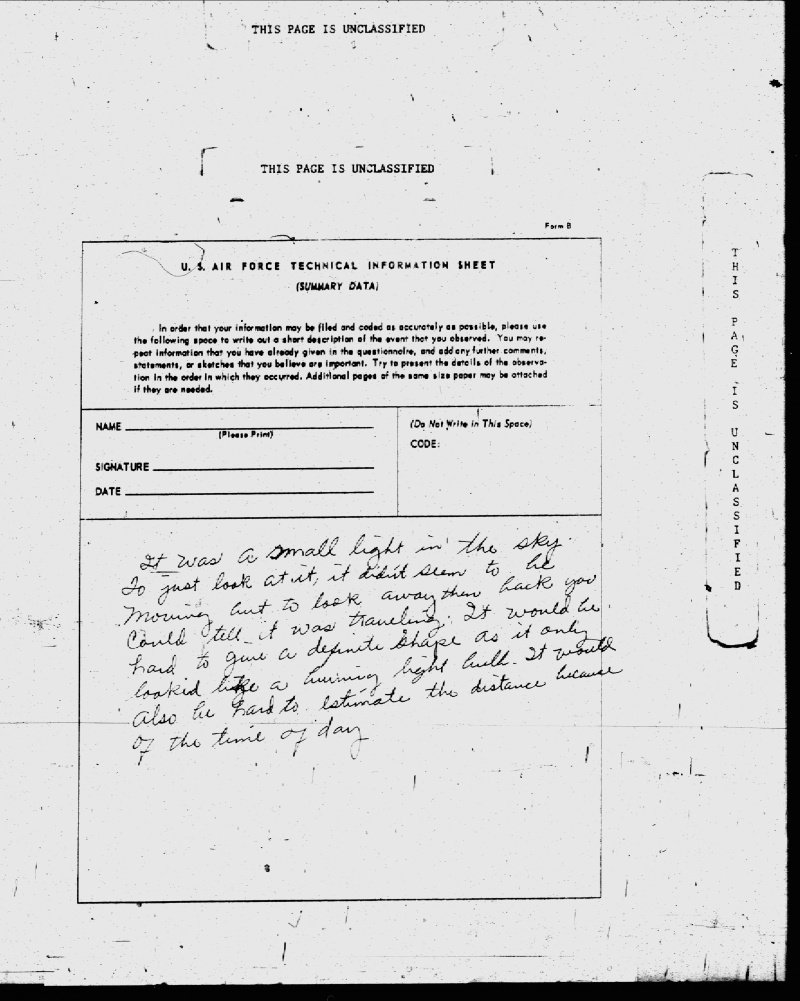 THIS PAGE IS UNCLASSIFIED
THIS PAGE IS UNCLASSIFIED
Form B
U. S. AIR FORCE TECHNICAL INFORMATION SHEET
(SUMMARY DATA)
In order that your information may be filed and coded as accurately as possible, please use
the following space to write out a short description of the event that you observed. You may re-
peat information that you have already given in the questionnaire, and add any further comments,
statements, or sketches that you believe are important. Try to present the details of the observa-
tion in the order in which they occurred. Additional pages of the same size paper may be attached
if they are needed.
NAME
(Please Print)
SIGNATURE
DATE
(Do Not Write in This Space)
CODE:
It was a small light in the sky.
To just look at it, it didn't seem to be
moving but to look away then back you
could tell it was traveling. It would be
hard to give a definite shape as it only
lookid like a burning light bulb. It would
also be hard to estimate the distance because
of the time of day
THIS PAGE IS UNCLASSIFIED